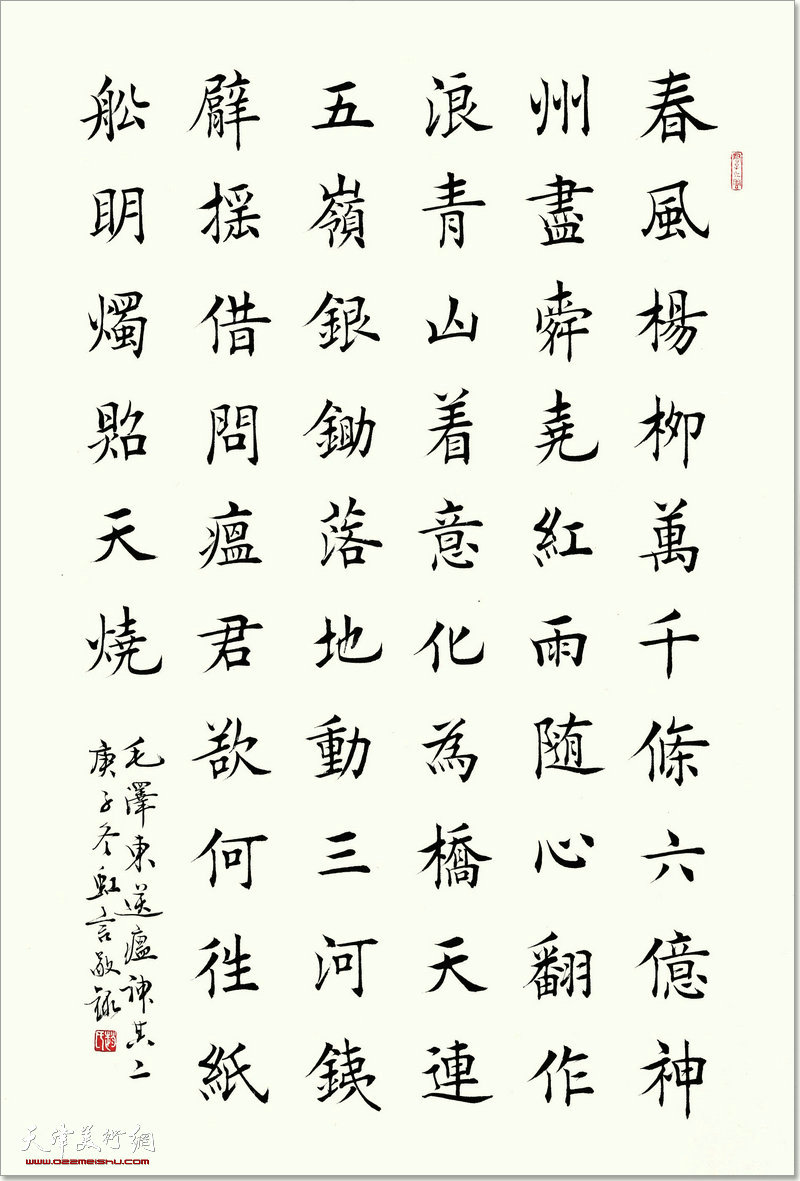 春風楊柳萬千條六億神
州盡舜堯紅雨随心翻作
浪青山着意化為橋天連
五嶺銀鋤落地動三河鐵
臂摇借問瘟君欲何往紙
船明燭照天燒
毛澤東送瘟神其二
庚子冬虹言敬錄
天津美術網
www.022meishu.com